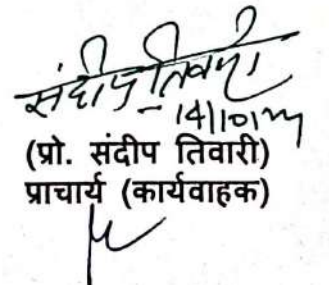 संदीप तिवारी
14/10/
(प्रो. संदीप तिवारी)
प्राचार्य (कार्यवाहक)